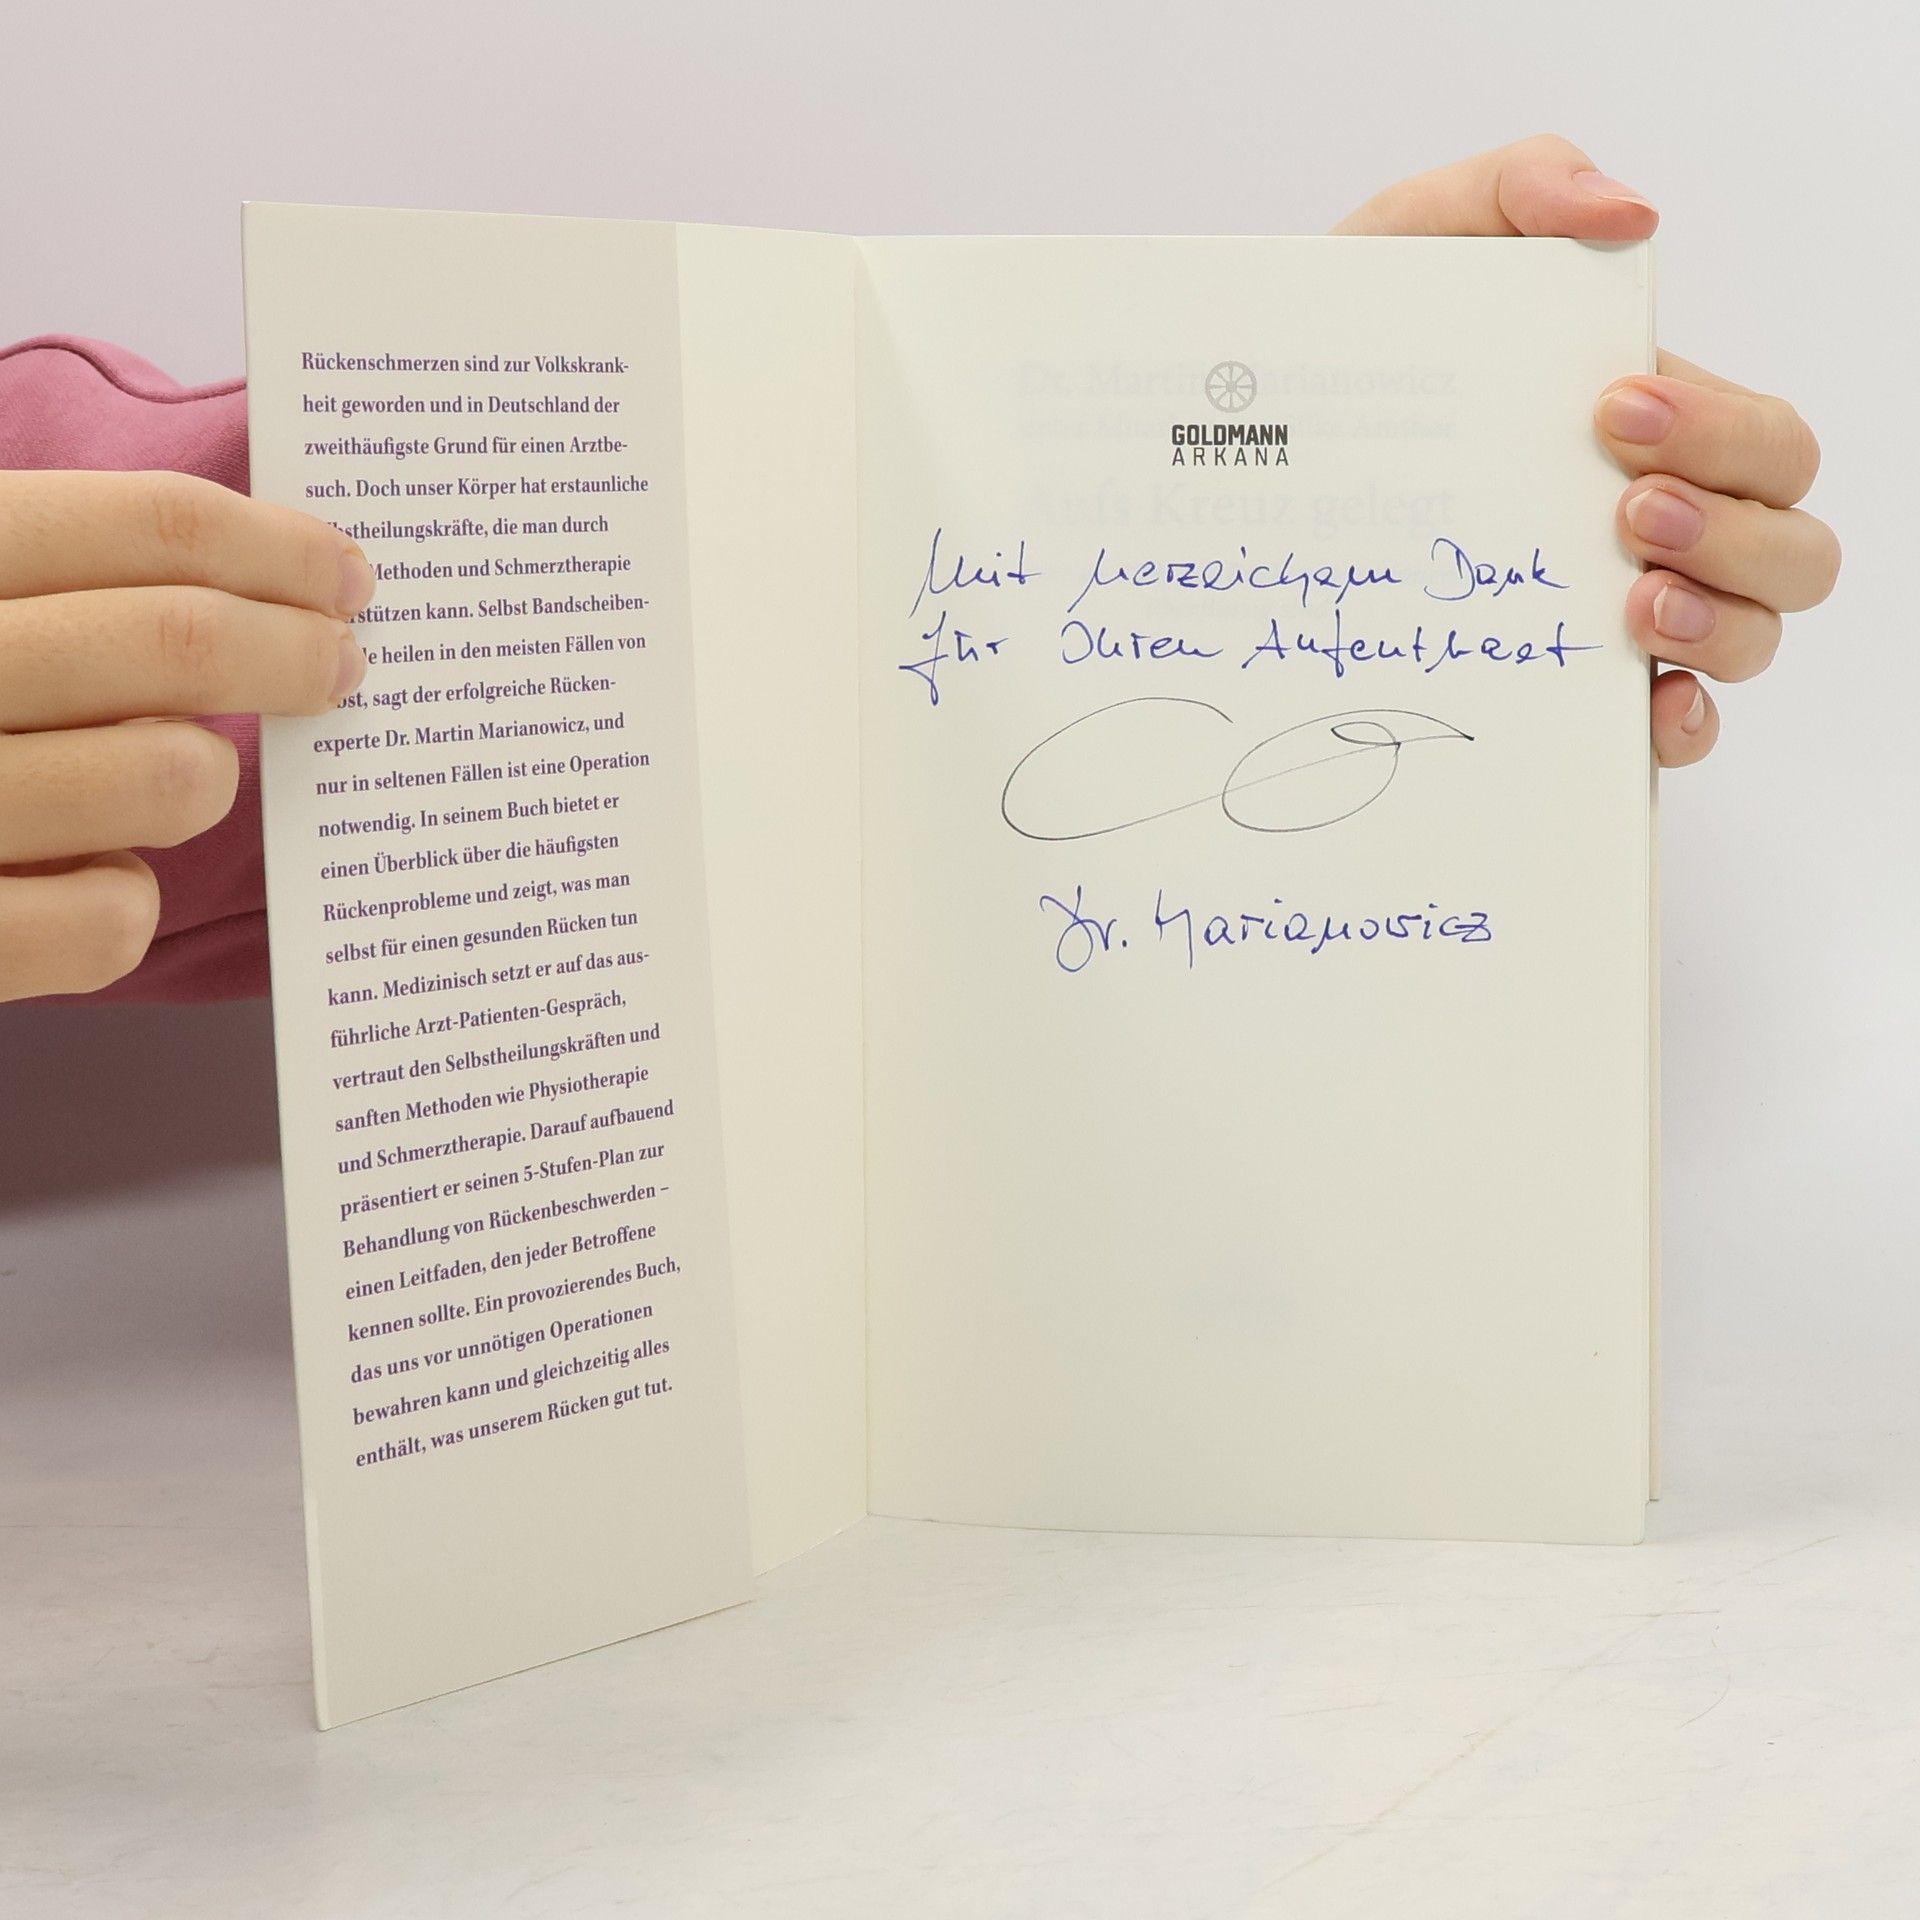 Rückenschmerzen sind zur Volkskrank-
heit geworden und in Deutschland der
zweithäufigste Grund für einen Arztbe-
such. Doch unser Körper hat erstaunliche
bstheilungskräfte, die man durch
Methoden und Schmerztherapie
stützen kann. Selbst Bandscheiben-
le heilen in den meisten Fällen von
bst, sagt der erfolgreiche Rücken-
experte Dr. Martin Marianowicz, und
nur in seltenen Fällen ist eine Operation
notwendig. In seinem Buch bietet er
einen Überblick über die häufigsten
Rückenprobleme und zeigt, was man
selbst für einen gesunden Rücken tun
kann. Medizinisch setzt er auf das aus-
führliche Arzt-Patienten-Gespräch,
vertraut den Selbstheilungskräften und
sanften Methoden wie Physiotherapie
und Schmerztherapie. Darauf aufbauend
präsentiert er seinen 5-Stufen-Plan zur
Behandlung von Rückenbeschwerden –
einen Leitfaden, den jeder Betroffene
kennen sollte. Ein provozierendes Buch,
das uns vor unnötigen Operationen
bewahren kann und gleichzeitig alles
enthält, was unserem Rücken gut tut.
GOLDMANN
ARKANA
Mit herzlichem Dank
für Ihren Aufenthalt
Dr. Marianowicz